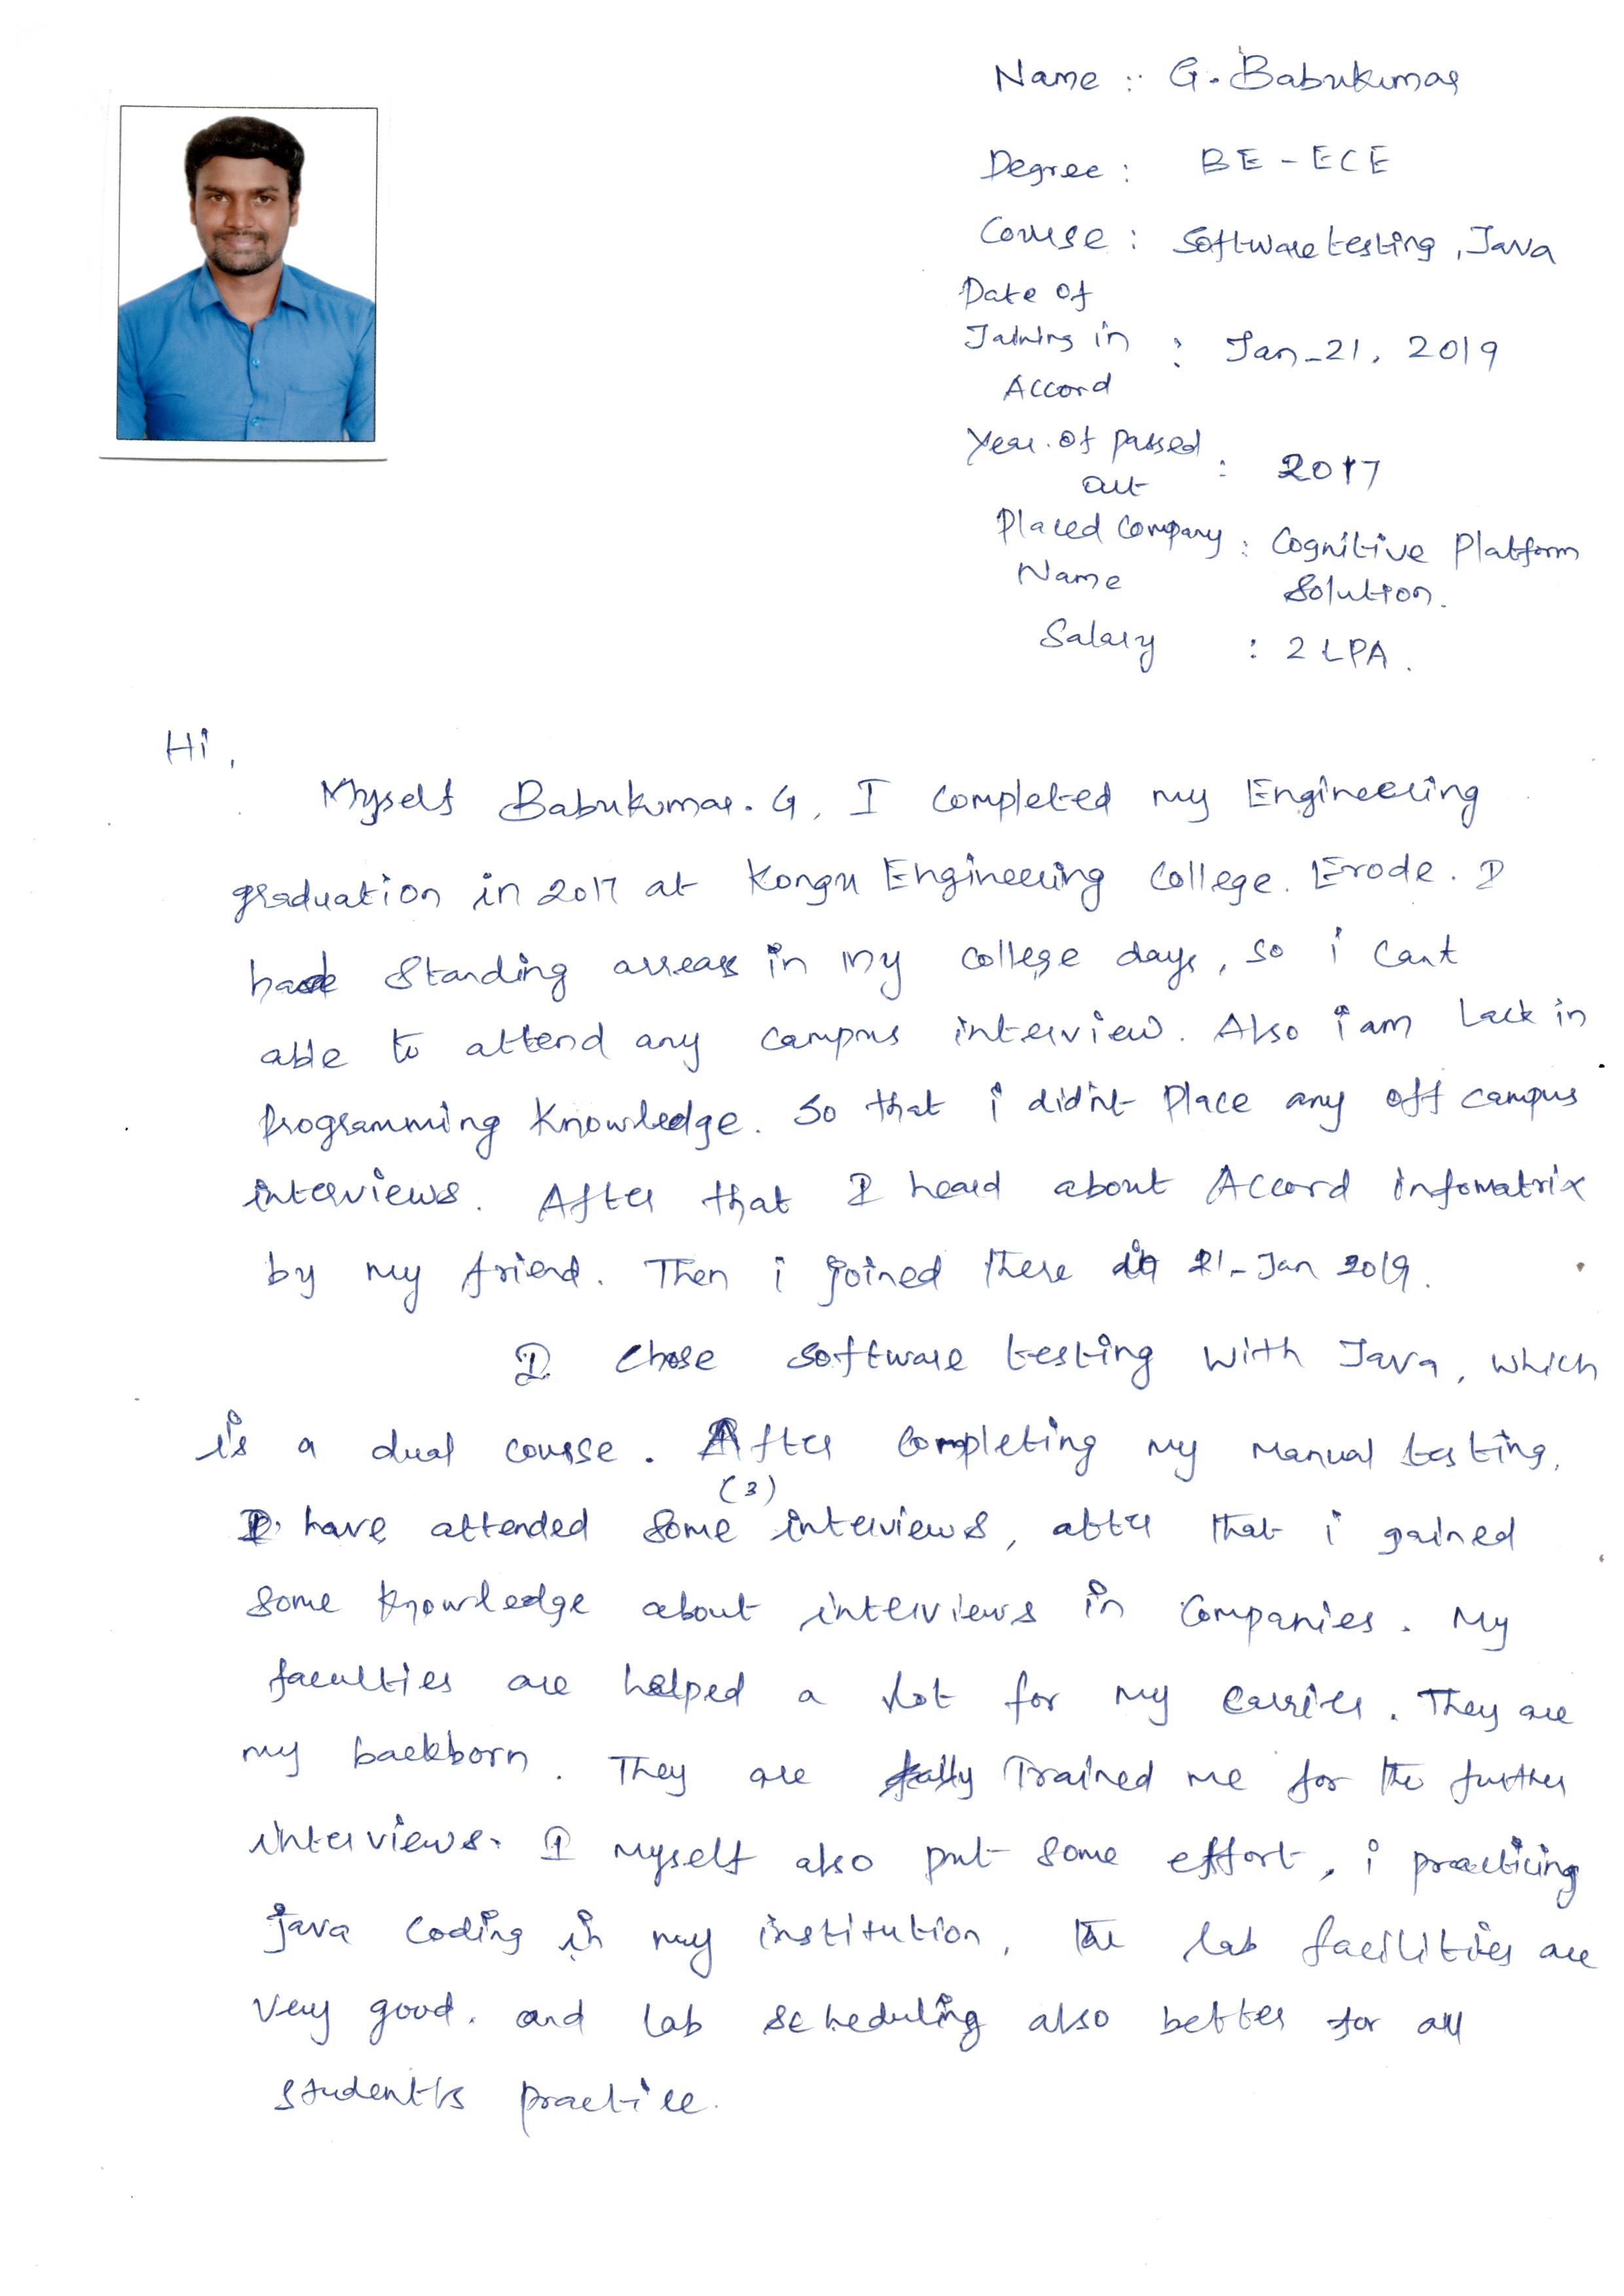 Name : G. Babukumar
Degree : BE - ECE
Course : Software testing, Java
Date of
Joining in : Jan-21, 2019
Accord
Year of passed : 2017
out
Placed Company : Cognitive Platform
Name Solution.
Salary : 2 LPA.
Hi,
Myself Babukumar. G, I completed my Engineering
graduation in 2017 at Kongu Engineering College. Erode. I
have Standing arrears in my college days, so i cant
able to attend any campus interview. Also i am lack in
programming knowledge. So that i didn't place any off campus
interviews. After that I heard about Accord infomatrix
by my friend. Then i joined there in 21-Jan 2019.
I chose software testing with Java, which
is a dual course. After completing my manual testing,
(3)
I have attended some interviews, after that i gained
some knowledge about interviews in companies. My
faculties are helped a lot for my carrier. They are
my backborn. They are Trained me for the further
interviews. I myself also put some effort, i practicing
java coding in my institution, The lab facilities are
very good. and lab scheduling also better for all
students practice.